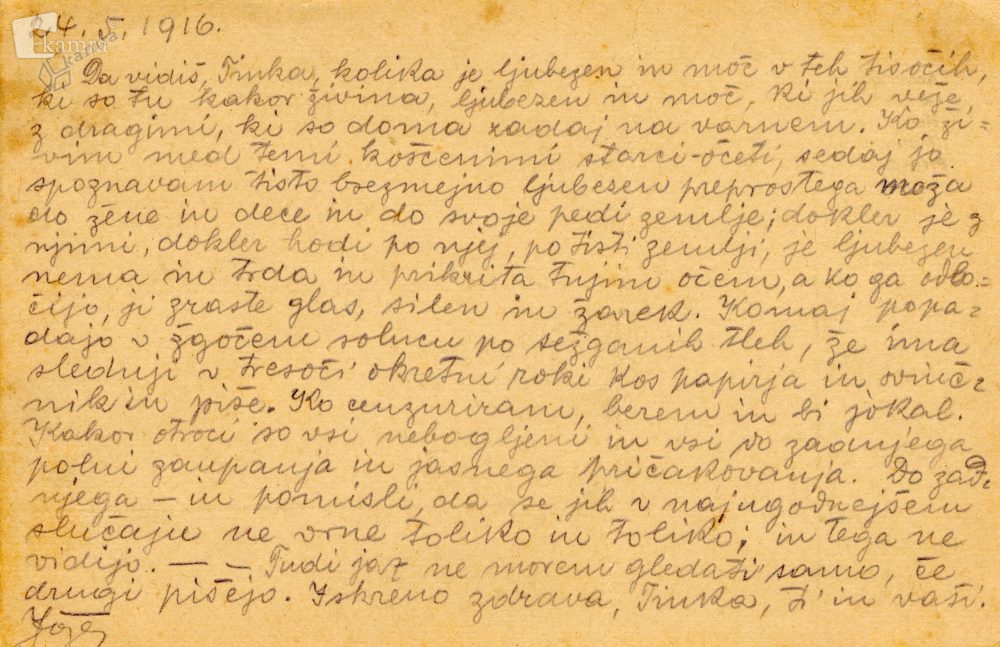 24. 5. 1916.
Da vidiš, Tinka, kolika je ljubezen in moč v teh tisočih,
ki so tu kakor živina, ljubezen in moč, ki jih veže
z dragimi, ki so doma zadaj na varnem. Ko ži=
vim med temi koščenimi starci-očeti, sedaj jo
spoznavam tisto brezmejno ljubezen preprostega moža
do žene in dece in do svoje pedi zemlje; dokler je z
njimi, dokler hodi po njej, po tisti zemlji, je ljubezen
nema in trda in prikrita tujim očem, a ko ga odlo=
čijo, ji zraste glas, silen in žarek. Komaj popa=
dajo v žgočem solncu po sežganih tleh, že ima
slednji v tresoči okretni roki kos papirja in svinč=
nik in piše. Ko cenzuriram, berem in bi jokal.
Kakor otroci so vsi nebogljeni in vsi do zadnjega
polni zaupanja in jasnega pričakovanja. Do zad=
njega – in pomisli, da se jih v najugodnejšem
slučaju ne vrne toliko in toliko; in tega ne
vidijo. — — Tudi jaz ne morem gledati samo, če
drugi pišejo. Iskreno zdrava, Tinka, ti in vaši.
Jože
kamra
kamra